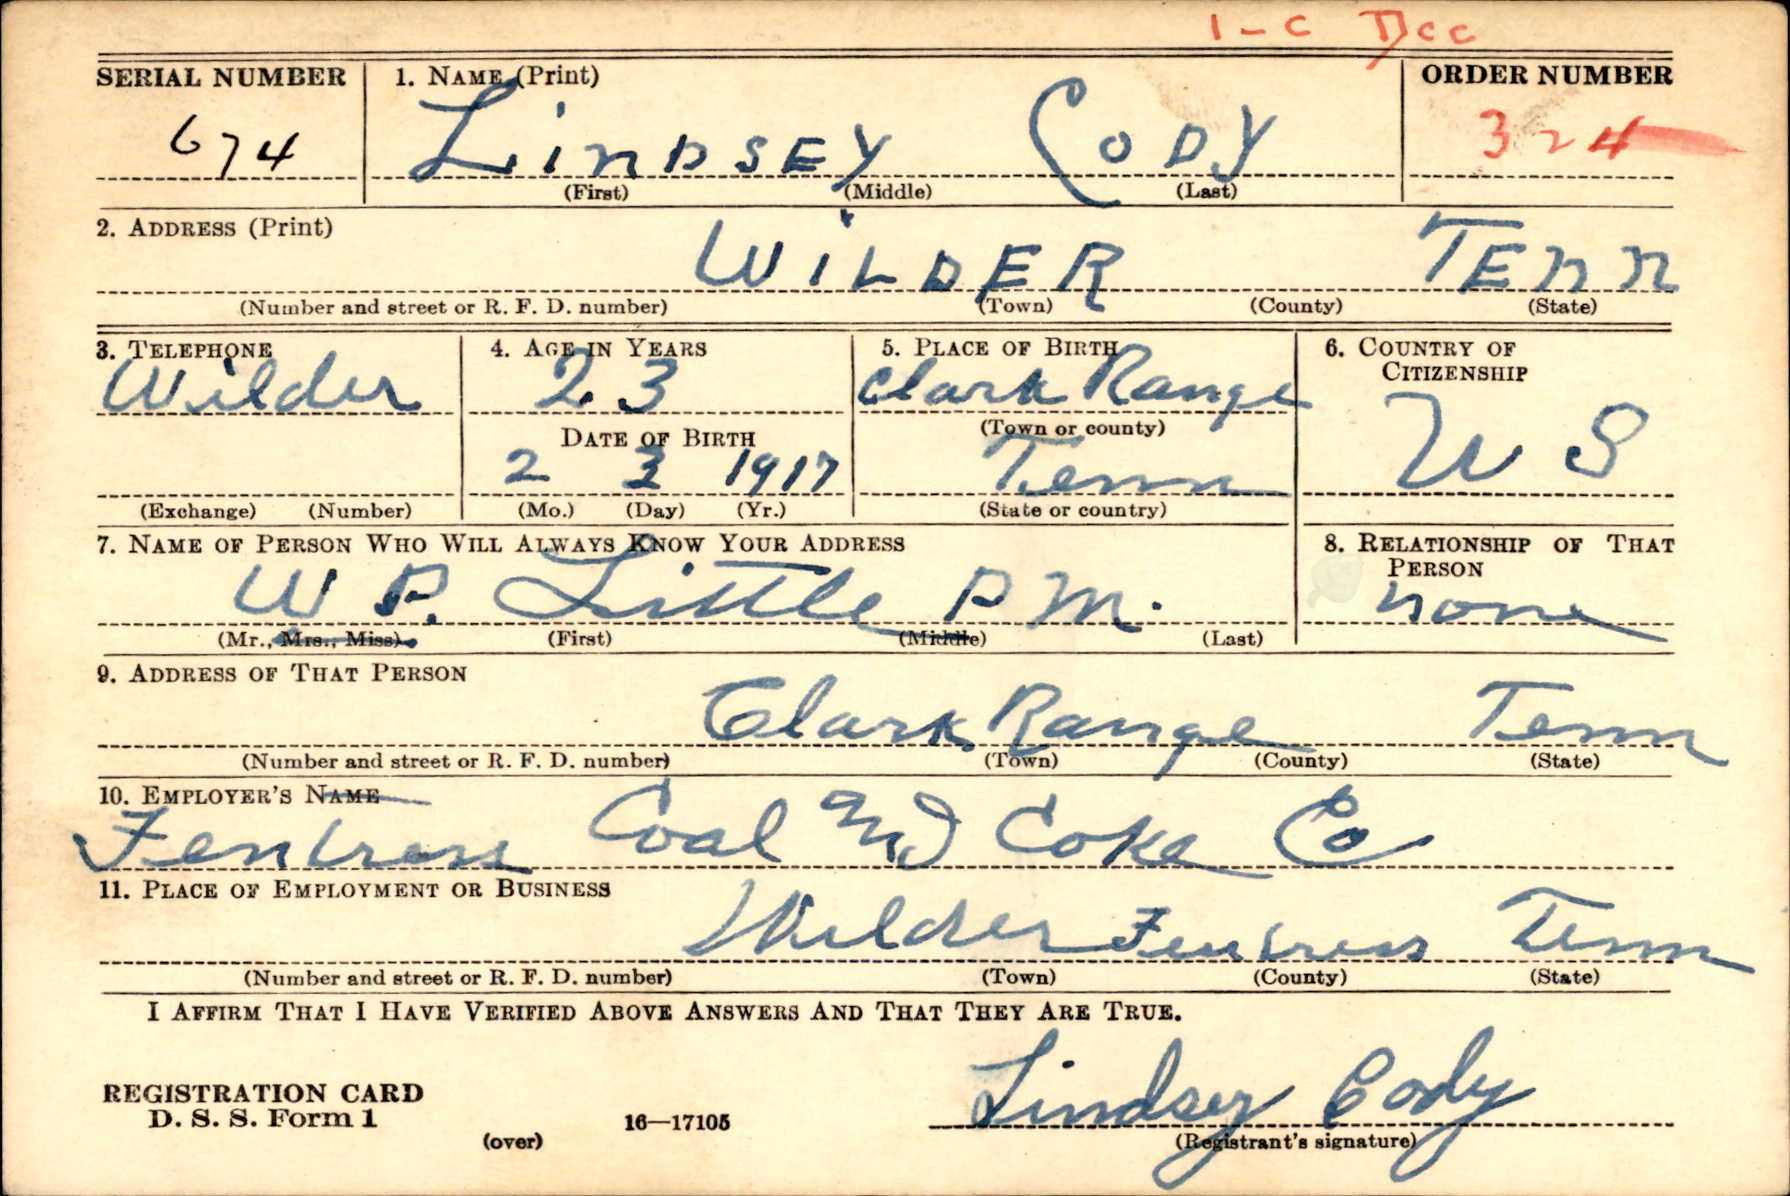 1-C Dcc
SERIAL NUMBER 1. NAME (Print) ORDER NUMBER
674 LINDSEY CODY 324
(First) (Middle) (Last)
2. ADDRESS (Print)
WILDER TENN
(Number and street or R. F. D. number) (Town) (County) (State)
3. TELEPHONE 4. AGE IN YEARS 5. PLACE OF BIRTH 6. COUNTRY OF CITIZENSHIP
Wilder 23 Clark Range
(Town or county)
DATE OF BIRTH
2 3 1917 Tenn U S
(Exchange) (Number) (Mo.) (Day) (Yr.) (State or country)
7. NAME OF PERSON WHO WILL ALWAYS KNOW YOUR ADDRESS 8. RELATIONSHIP OF THAT PERSON
W P. Little P M. none
(Mr., Mrs., Miss) (First) (Middle) (Last)
9. ADDRESS OF THAT PERSON
Clark Range Tenn
(Number and street or R. F. D. number) (Town) (County) (State)
10. EMPLOYER'S NAME
Fentress Coal and Coke Co
11. PLACE OF EMPLOYMENT OR BUSINESS
Wilder Fentress Tenn
(Number and street or R. F. D. number) (Town) (County) (State)
I AFFIRM THAT I HAVE VERIFIED ABOVE ANSWERS AND THAT THEY ARE TRUE.
Lindsey Cody
REGISTRATION CARD
D. S. S. Form 1 16—17105
(over) (Registrant's signature)